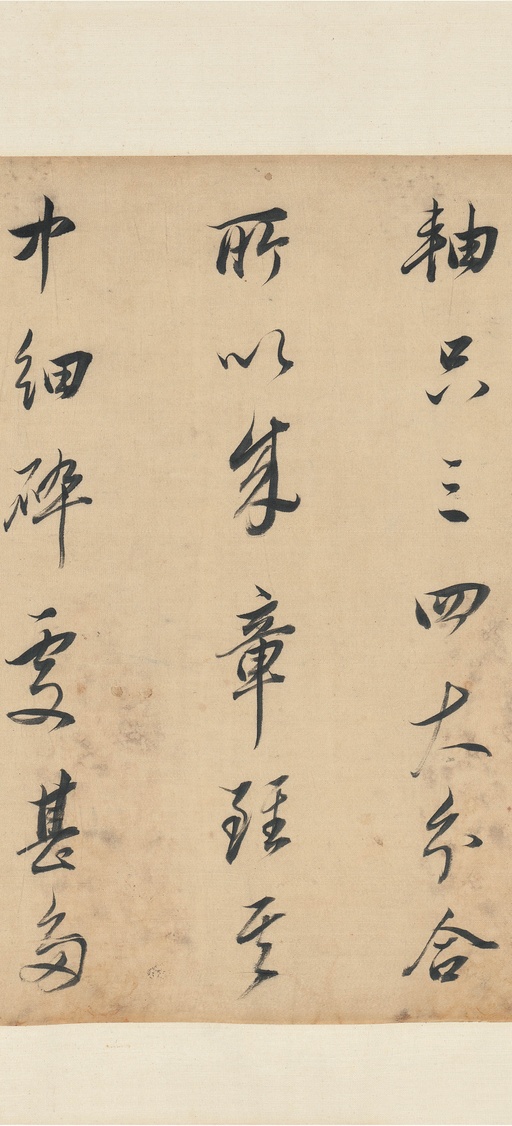 軸只三四大分合
所以成章雖其
中細碎處甚多